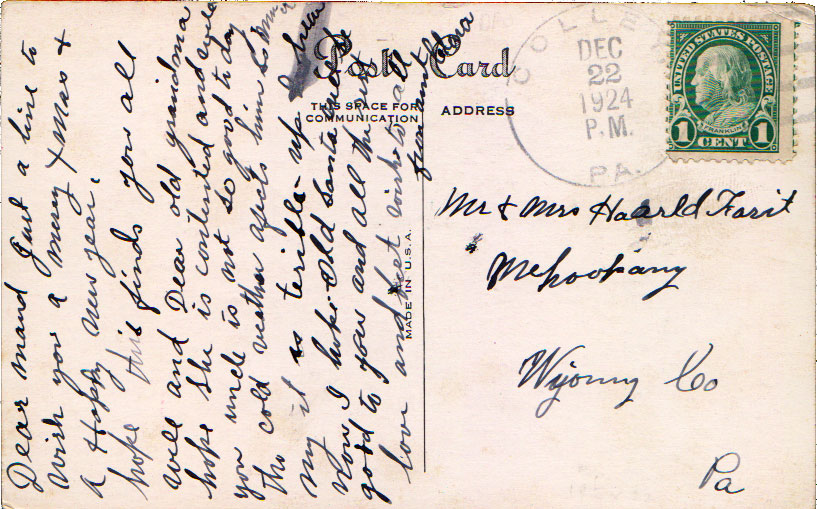 Post Card
THIS SPACE FOR
COMMUNICATION
ADDRESS
MADE IN U.S.A.
COLLE
DEC
22
1924
P.M.
PA.
UNITED STATES POSTAGE
FRANKLIN
1 CENT 1
Mr & Mrs Haarld Farit
Mehoopany
Wyoming Co
Pa
Dear maud Just a line to
wish you a merry Xmas &
a Happy new year.
hope this finds you all
well and Dear old grandma
hope she is contented and
you uncle is not so good to day
the cold weather afects him so
my it is terible up here
now I hope old Santa will be
good to you and all the rest
love and best wishes to all
from aunt